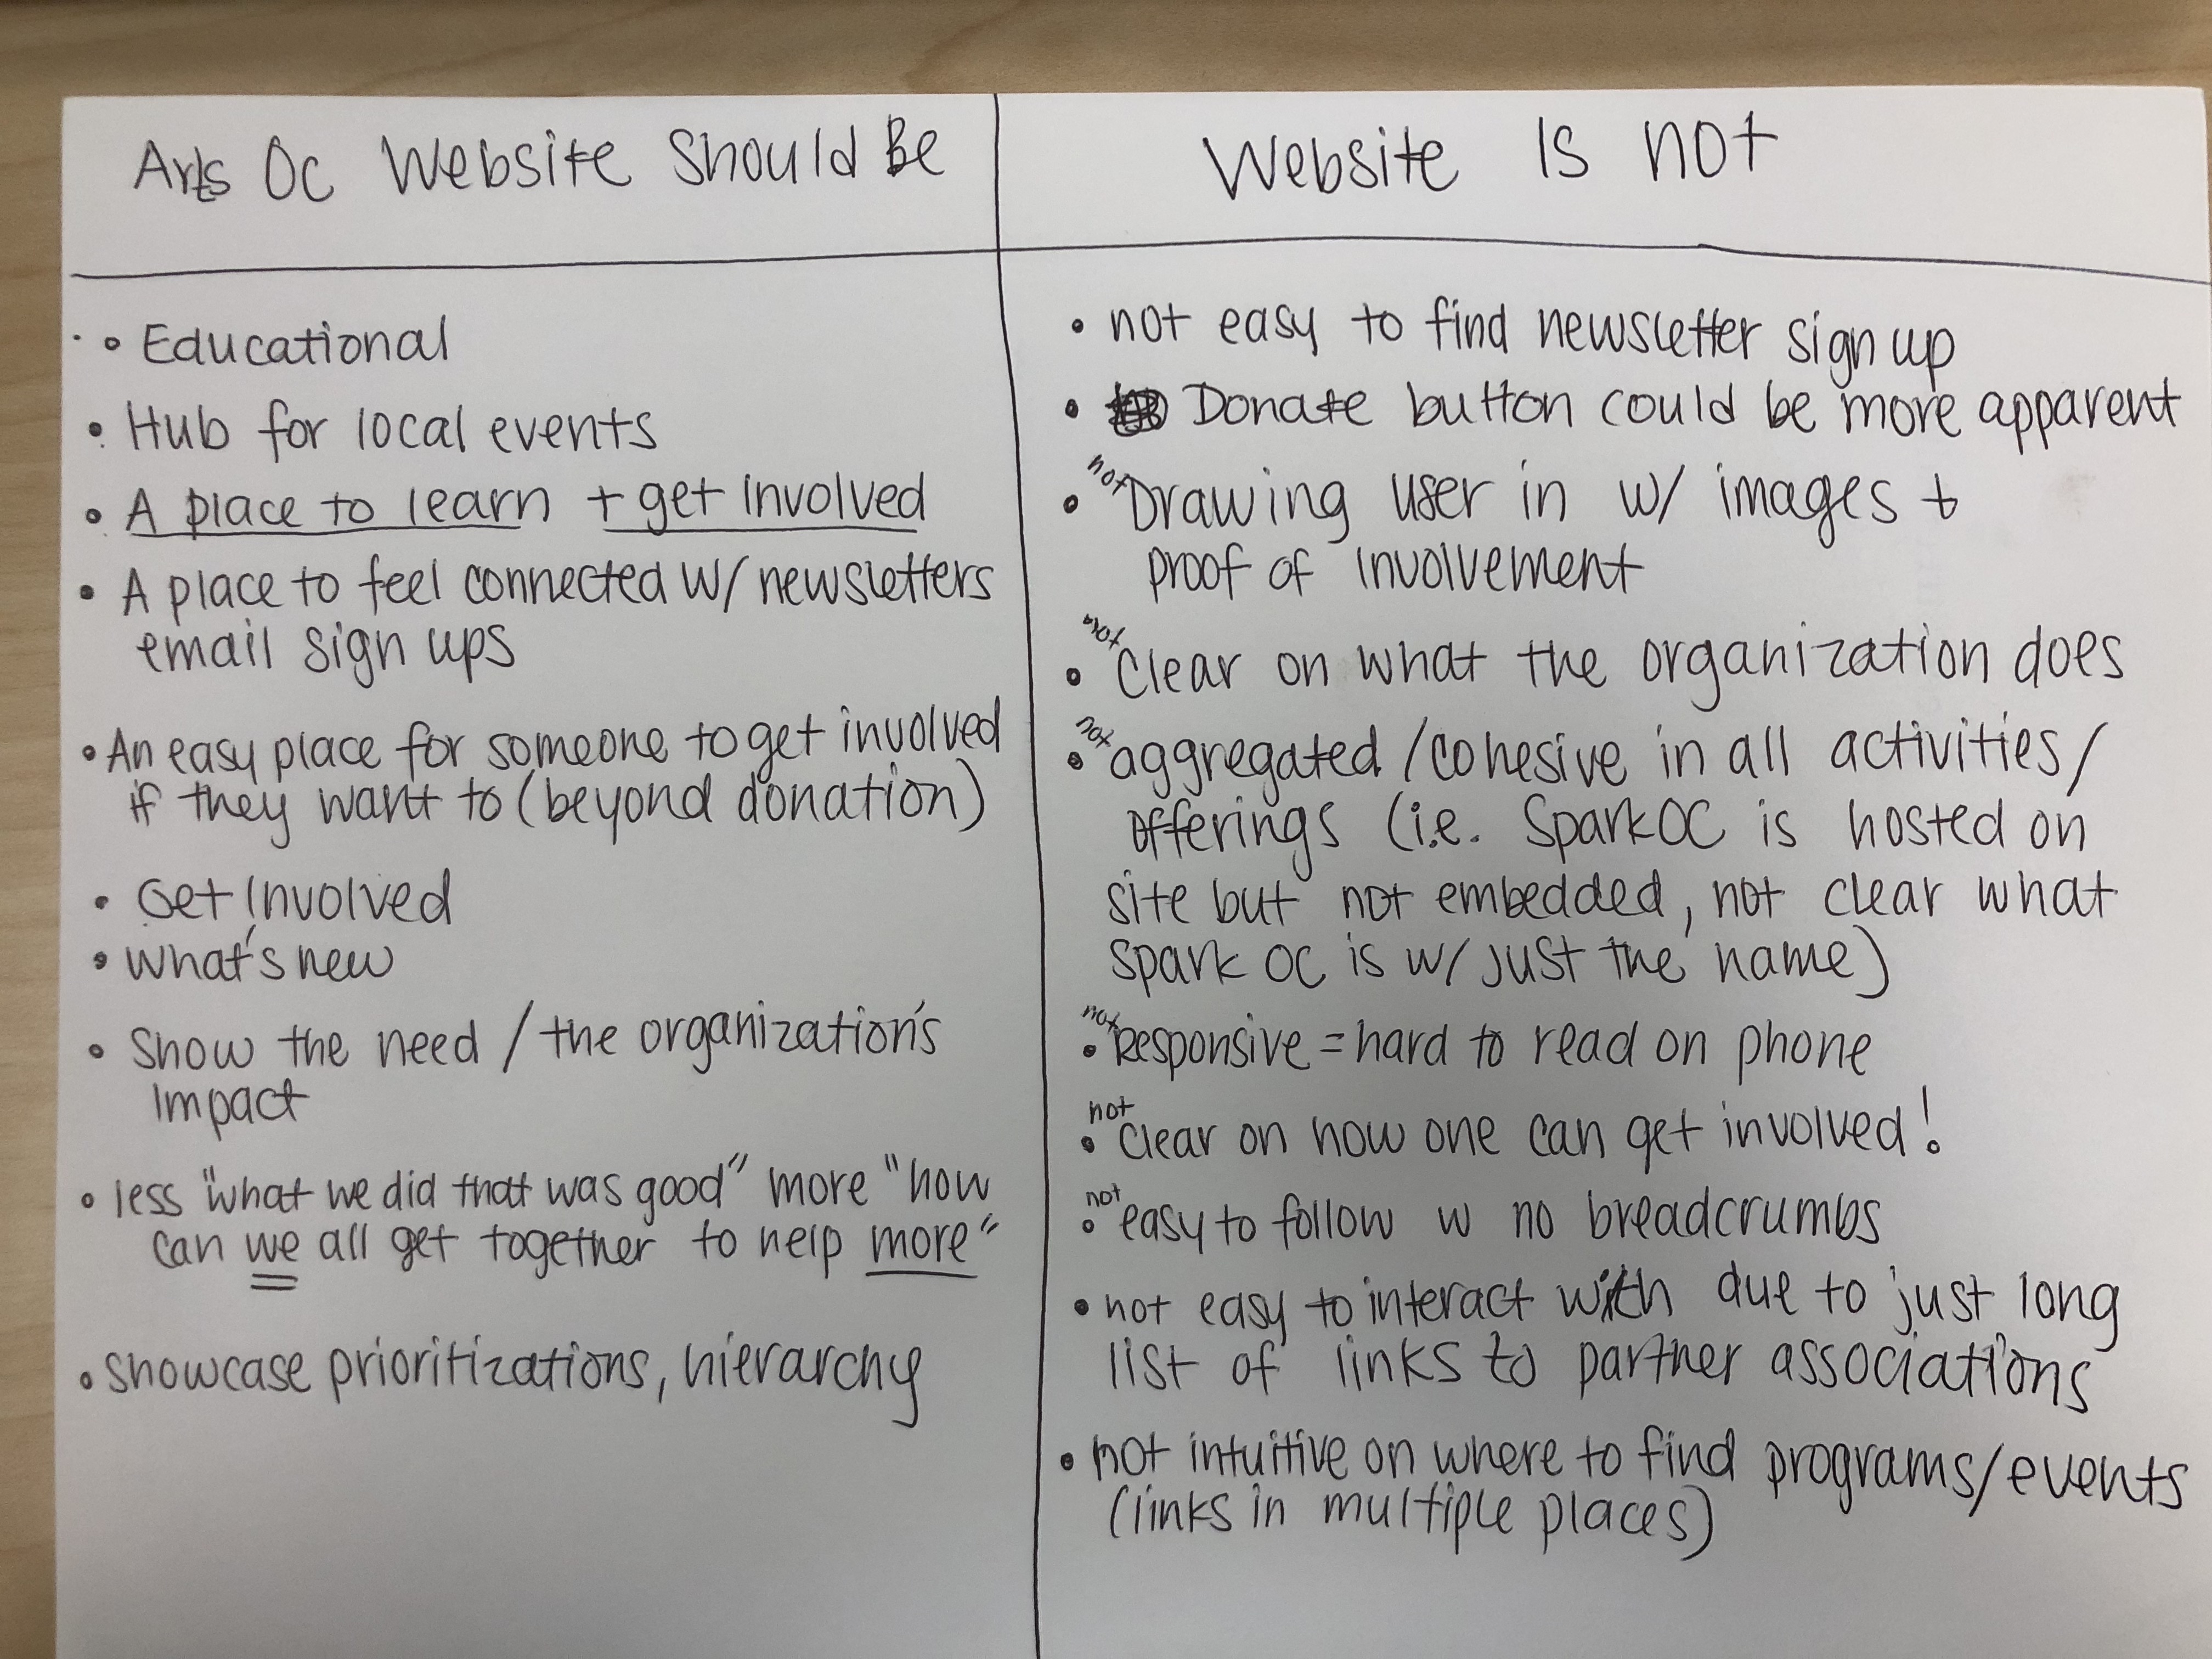 Arts Oc Website Should Be
• Educational
• Hub for local events
• A place to learn + get involved
• A place to feel connected w/ newsletters
email sign ups
• An easy place for someone to get involved
if they want to (beyond donation)
• Get Involved
• What's new
• Show the need / the organization's
impact
• less "what we did that was good" more "how
can we all get together to help more"
• showcase prioritizations, hierarchy
Website Is not
• not easy to find newsletter sign up
• Donate button could be more apparent
• not Drawing user in w/ images +
proof of involvement
• not Clear on what the organization does
• not aggregated / cohesive in all activities /
offerings (i.e. SparkOC is hosted on
site but not embedded, not clear what
Spark OC is w/ just the name)
• not Responsive = hard to read on phone
• not Clear on how one can get involved!
• not easy to follow w no breadcrumbs
• not easy to interact with due to just long
list of links to partner associations
• not intuitive on where to find programs/events
(links in multiple places)